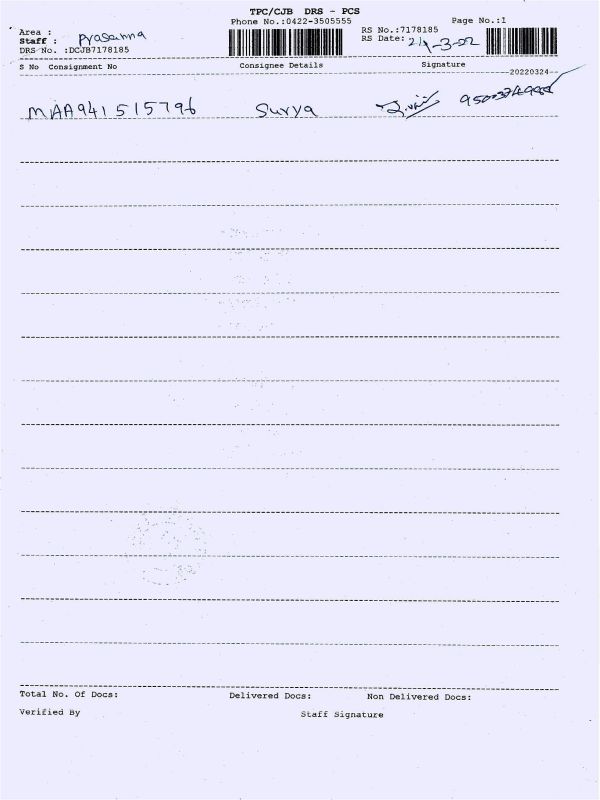 TPC/CJB DRS - PCS
Phone No.:0422-3505555
Page No.:1
Area :
Staff : Prasanna
DRS No. :DCJB7178185
RS No.:7178185
RS Date: 24-3-22
S No Consignment No Consignee Details Signature
20220324
MAA941515796 Surya
Total No. Of Docs: Delivered Docs: Non Delivered Docs:
Verified By Staff Signature